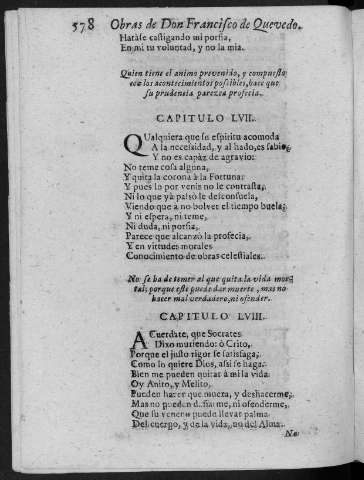 578 Obras de Don Francisco de Quevedo.
Haràse castigando mi porfia,
En mi tu voluntad, y no la mia.
Quien tiene el animo prevenido, y compuesto
con los acontecimientos possibles, hace que
su prudencia parezca profecia.
CAPITULO LVII.
QUalquiera que su espiritu acomoda
A la necessidad, y al hado, es sabio,
Y no es capàz de agravio:
No teme cosa alguna,
Y quita la corona à la Fortuna:
Y pues lo por venir no le contrasta,
Ni lo que yà passò le desconsuela,
Viendo que à no bolver el tiempo buela;
Y ni espera, ni teme,
Ni duda, ni porfia,
Parece que alcanzò la profecia,
Y en virtudes morales
Conocimiento de obras celestiales.
No se ha de temer al que quita la vida mor-
tal; porque este puede dar muerte, mas no
hacer mal verdadero, ni ofender.
CAPITULO LVIII.
ACuerdate, que Socrates
Dixo muriendo: ò Crito,
Porque el justo rigor se satisfaga,
Como lo quiere Dios, assi se haga.
Bien me pueden quitar à mi la vida
Oy Anito, y Melito,
Pueden hacer que muera, y deshacerme;
Mas no pueden dañarme, ni ofenderme,
Que su veneno puede llevar palma
Del cuerpo, y de la vida, no del Alma.
No